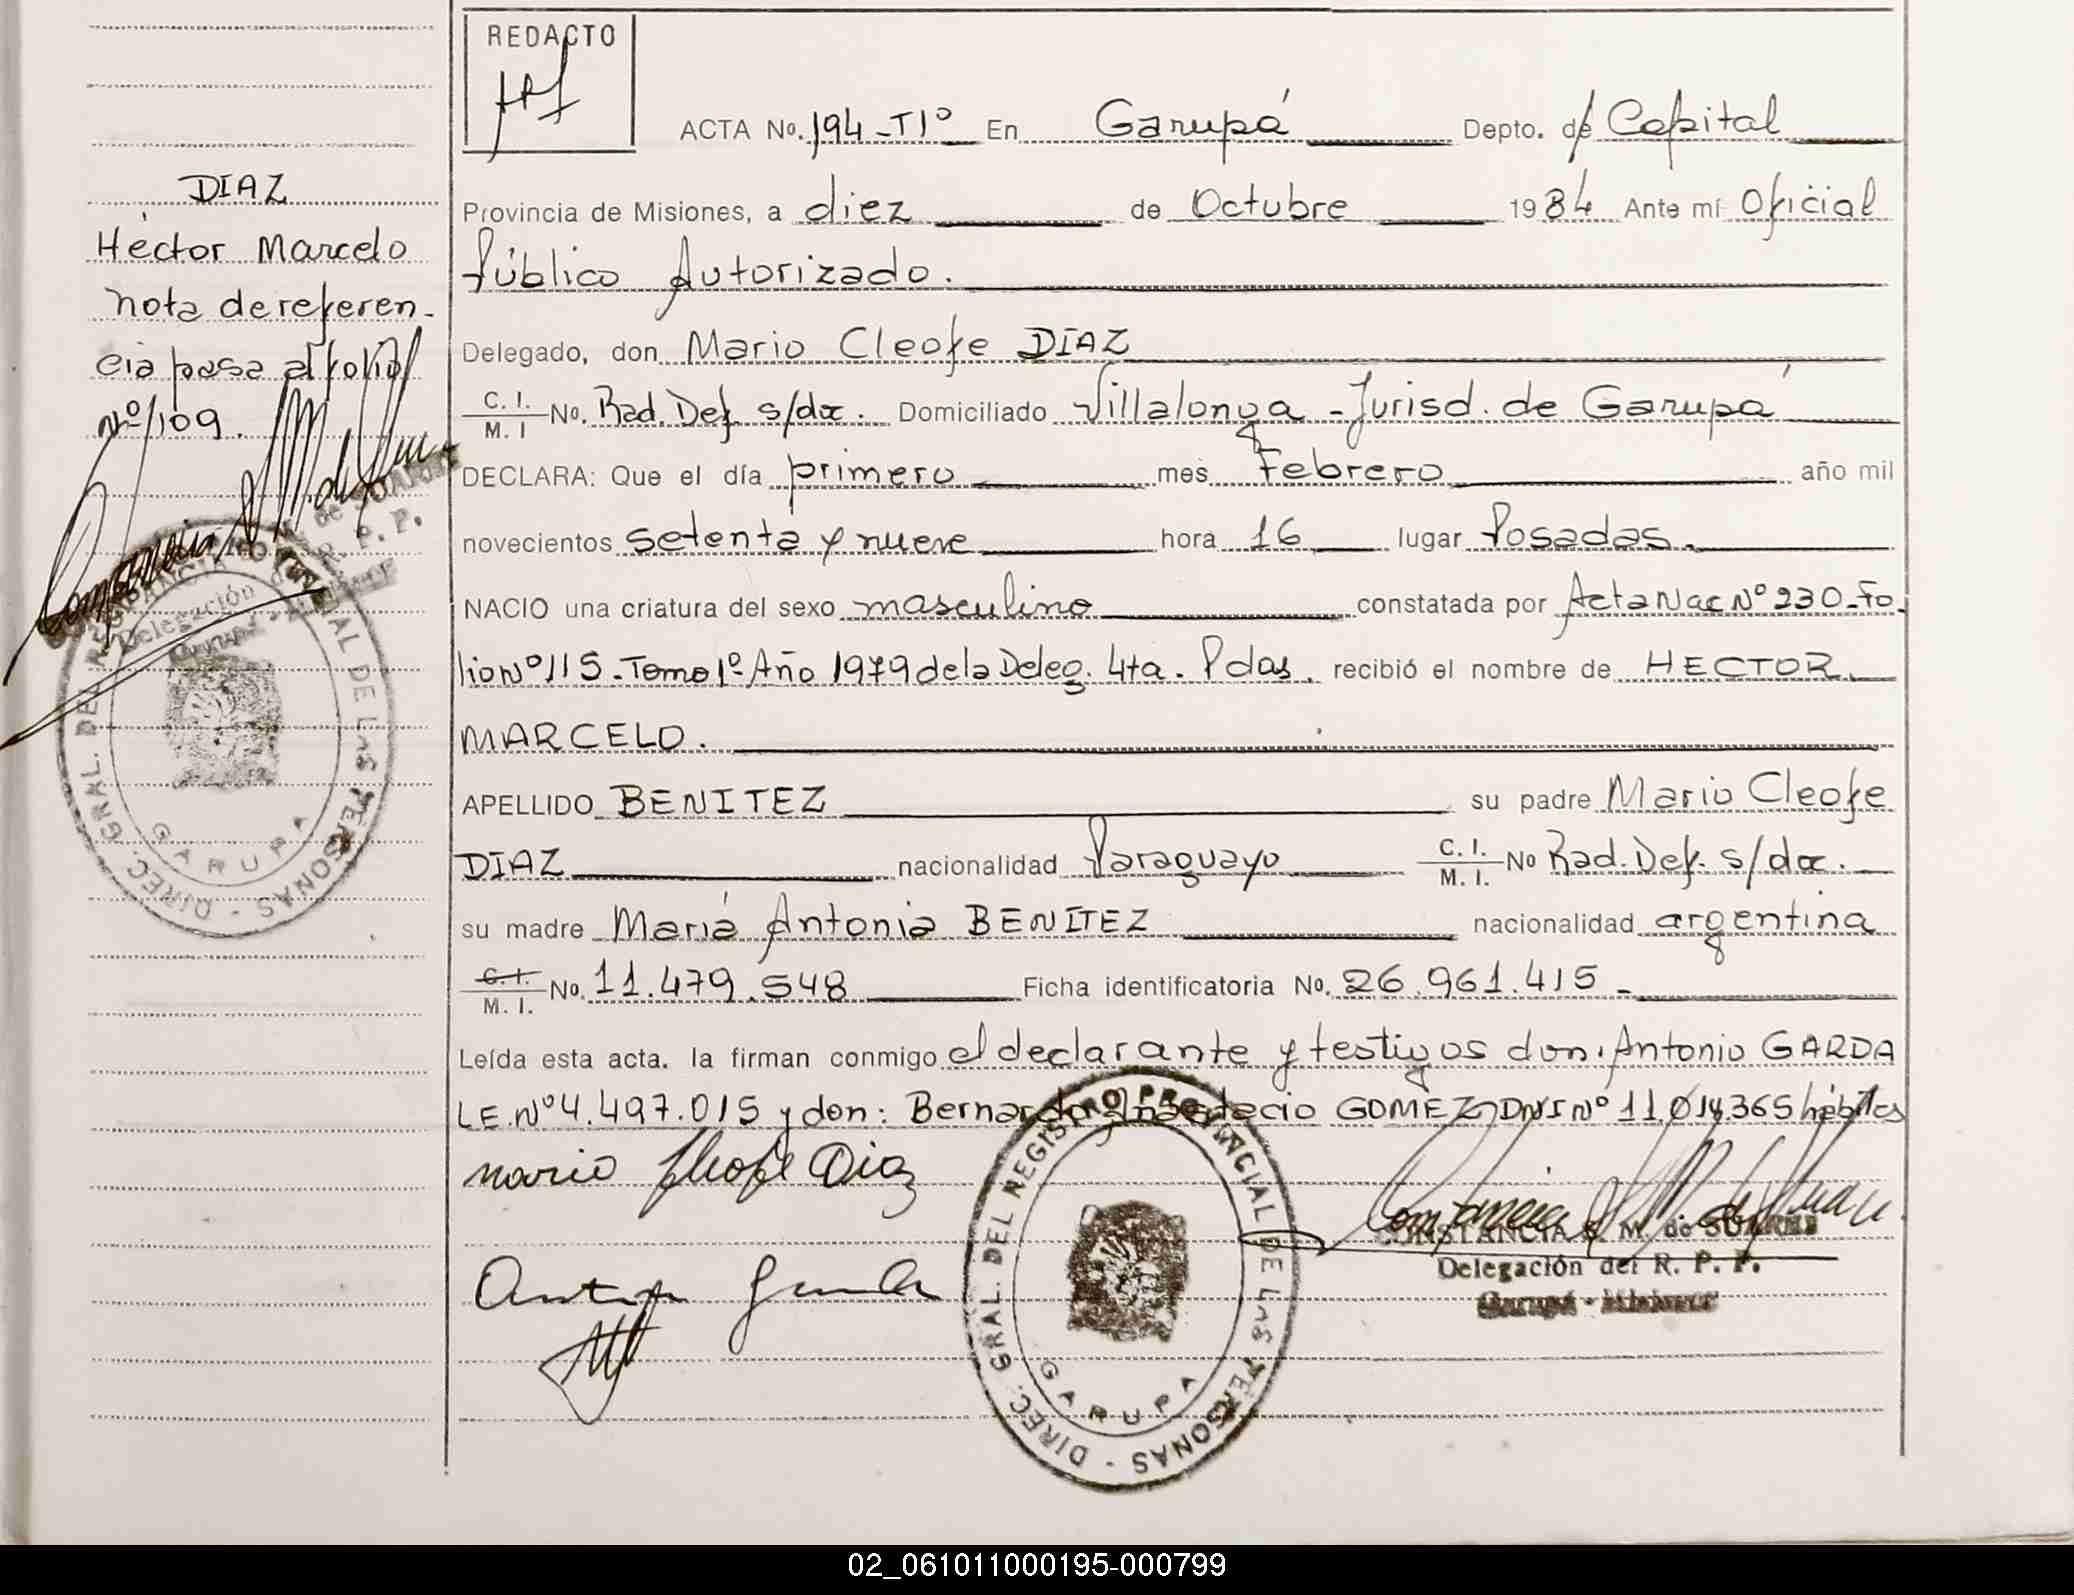 REDACTO
ACTA No. 194-T1º En Garupá Depto. de Capital
DIAZ
Héctor Marcelo
nota de referen-
cia pasa al folio
Nº 109.
Provincia de Misiones, a diez de Octubre 1984 Ante mí Oficial
Público Autorizado.
Delegado, don Mario Cleofe DIAZ
C. I.
M. I No. Rad. Def. s/doc. Domiciliado Villalonga - Jurisd. de Garupá
DECLARA: Que el día primero mes Febrero año mil
novecientos setenta y nueve hora 16 lugar Posadas.
NACIO una criatura del sexo masculino constatada por Acta Nac Nº 230-Fo-
lio Nº 115 - Tomo 1º Año 1979 de la Deleg. 4ta. Pdas. recibió el nombre de HECTOR
MARCELO.
APELLIDO BENITEZ su padre Mario Cleofe
DIAZ nacionalidad Paraguayo C. I.
M. I. No Rad. Def. s/doc.
su madre María Antonia BENITEZ nacionalidad argentina
C. I.
M. I. No. 11.479.548 Ficha identificatoria No. 26.961.415 -
Leída esta acta. la firman conmigo el declarante y testigos don: Antonio GARDA
LE. Nº 4.497.015 y don: Bernardo Anastacio GOMEZ DNI Nº 11.014.365 hábiles
Mario Cleofe Diaz
CONSTANCIA S. M. de SUAREZ
Delegación del R. P. P.
Garupá - Misiones
DIREC. GRAL. DEL REGISTRO PROVINCIAL DE LAS PERSONAS
GARUPA
DIREC. GRAL. DEL REGISTRO PROVINCIAL DE LAS PERSONAS
GARUPA
02_061011000195-000799